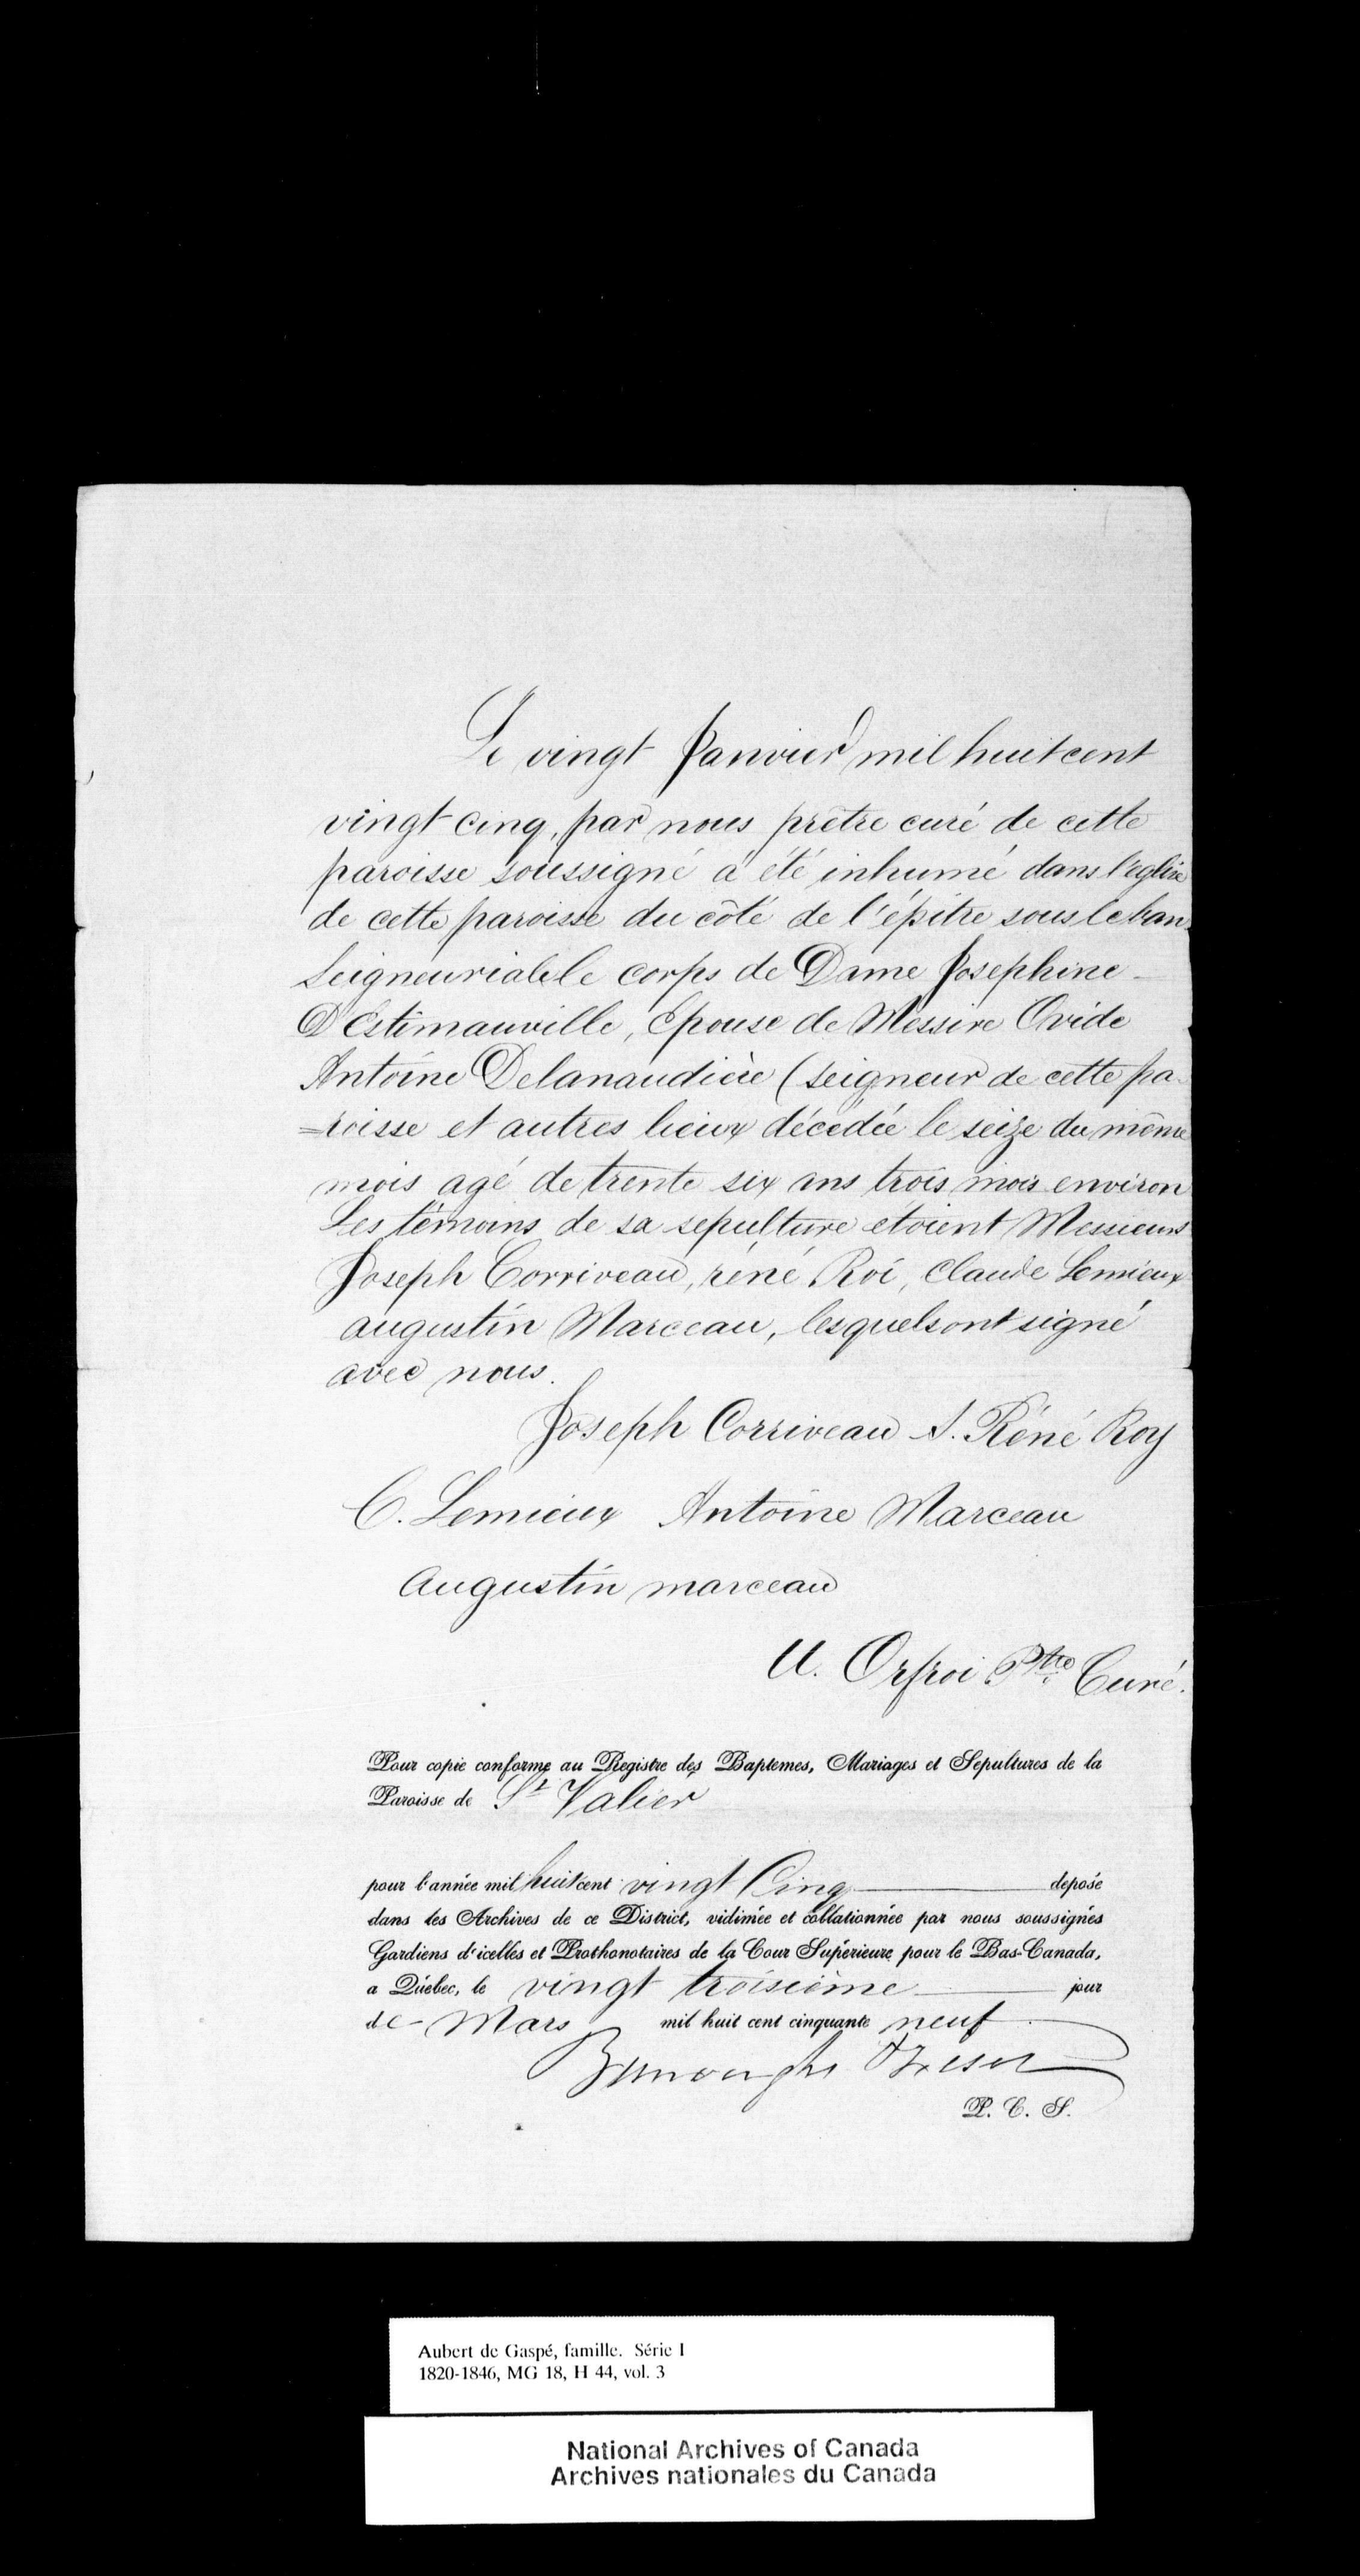 Le vingt Janvier mil huit cent
vingt cinq, par nous prêtre curé de cette
paroisse soussigné a été inhumé dans l'eglise
de cette paroisse du côté de l'épitre sous le ban
Seigneurial le corps de Dame Josephine
D'Estimauville, Epouse de Messire Ovide
Antoine Delanaudière (Seigneur de cette pa-
=roisse et autres lieux décédée le seize du même
mois agé de trente six ans trois mois environ
Les témoins de sa sepulture etoient Messieurs
Joseph Corriveau, réné Roi, Claude Lemieux
augustin Marceau, lesquels ont signé
avec nous.
Joseph Corriveau J. Réné Roy
C. Lemieux Antoine Marceau
Augustin marceau
U. Orfroi Ptre Curé.
Pour copie conforme au Registre des Baptemes, Mariages et Sepultures de la
Paroisse de St Valier
pour l'année mil huit cent vingt Cinq deposé
dans les Archives de ce District, vidimée et collationnée par nous soussignés
Gardiens d'icelles et Prothonotaires de la Cour Supérieure pour le Bas-Canada,
a Québec, le vingt troisième jour
de Mars mil huit cent cinquante neuf
P. C. S.
Aubert de Gaspé, famille. Série I
1820-1846, MG 18, H 44, vol. 3
National Archives of Canada
Archives nationales du Canada